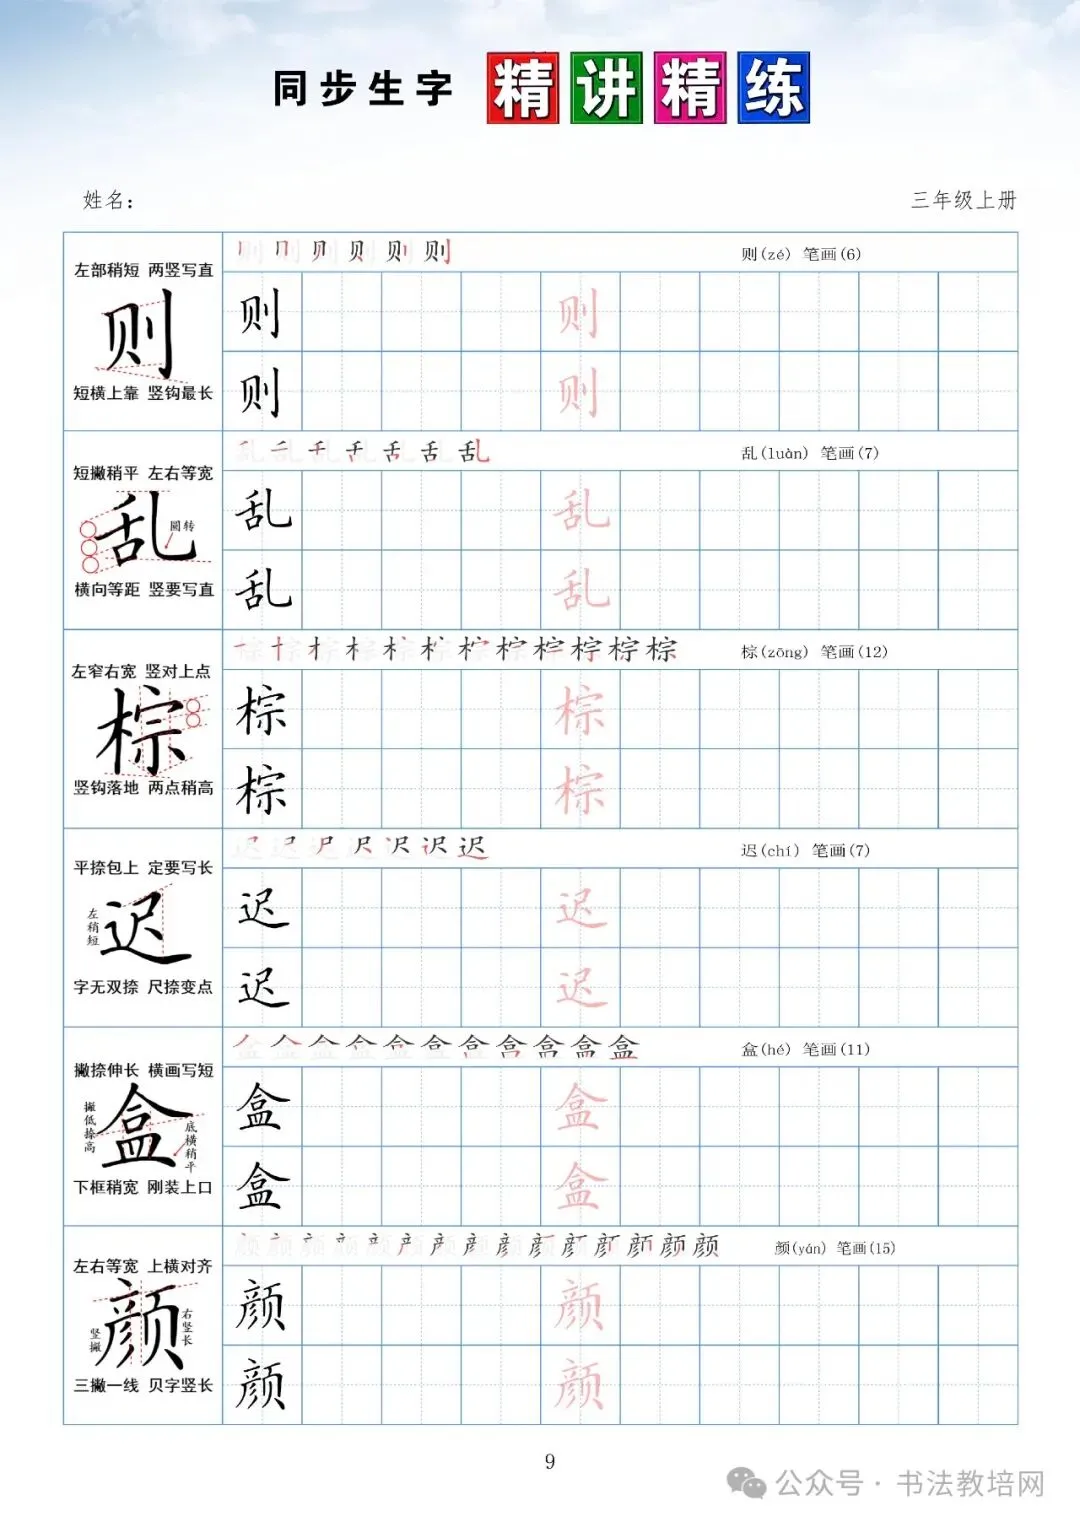 同步生字 精讲精练
姓名： 三年级上册
左部稍短 两竖写直
则
短横上靠 竖钩最长
则(zé) 笔画(6)
则 则
则 则
短撇稍平 左右等宽
乱
圆转
横向等距 竖要写直
乱(luàn) 笔画(7)
乱 乱
乱 乱
左窄右宽 竖对上点
棕
竖钩落地 两点稍高
棕(zōng) 笔画(12)
棕 棕
棕 棕
平捺包上 定要写长
迟
左稍短
字无双捺 尺捺变点
迟(chí) 笔画(7)
迟 迟
迟 迟
撇捺伸长 横画写短
盒
撇低捺高
底横稍平
下框稍宽 刚装上口
盒(hé) 笔画(11)
盒 盒
盒 盒
左右等宽 上横对齐
颜
竖撇
右竖长
三撇一线 贝字竖长
颜(yán) 笔画(15)
颜 颜
颜 颜
9
公众号·书法教培网